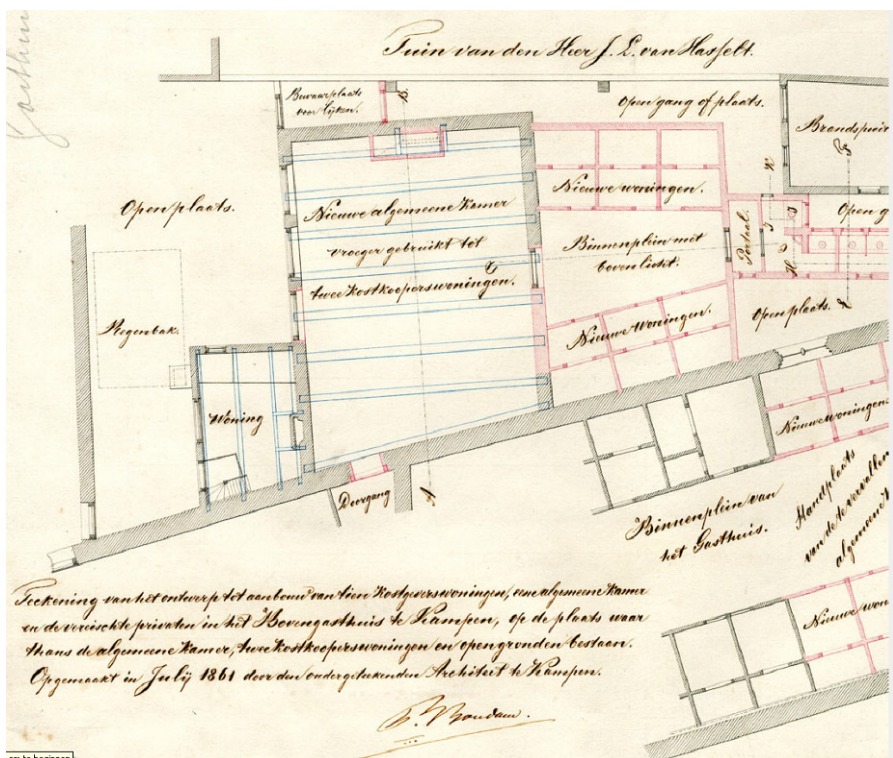 Tuin van den Heer J. L. van Hasselt.
Gasthuis
Bewaarplaats
voor lijken.
B.
Open gang of plaats.
Brandspuit
Open plaats.
Nieuwe algemeene Kamer
vroeger gebruikt tot
twee kostkooperswoningen.
C
Nieuwe woningen.
Binnenplein met
bovenlicht.
Portaal.
K
F
H
G
J
Open g
Nieuwe woningen.
Open plaats.
Regenbak.
Woning
Doorgang
A
Nieuwe woningen.
Binnenplein van
het Gasthuis.
Standplaats
van de te vervallen
algemeene
Nieuwe won
Teekening van het ontwerp tot aanbouw van tien Kostgeverswoningen, eene algemeene Kamer
en de vereischte privaten in het Bovengasthuis te Kampen, op de plaats waar
thans de algemeene Kamer, twee kostkooperswoningen en open gronden bestaan.
Opgemaakt in Julij 1861 door den ondergeteekenden Architect te Kampen.
Boudam.